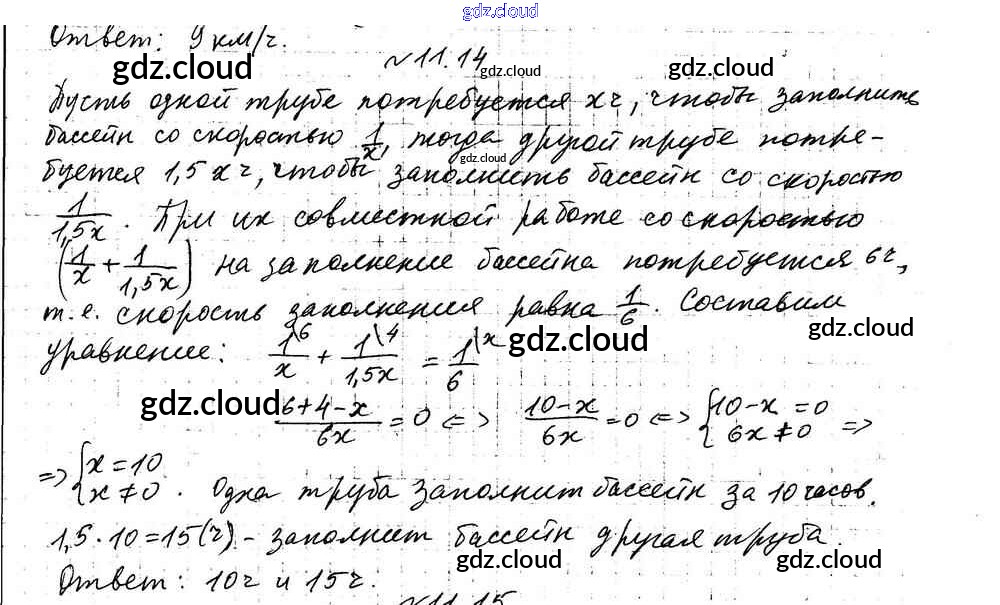 gdz.cloud
Ответ: 9 км/ч.
№11.14
gdz.cloud gdz.cloud gdz.cloud
Пусть одной трубе потребуется х ч, чтобы заполнить
бассейн со скоростью 1/x, тогда другой трубе потре-
gdz.cloud
буется 1,5 х ч, чтобы заполнить бассейн со скоростью
1/1,5x. При их совместной работе со скоростью
(1/x + 1/1,5x) на заполнение бассейна потребуется 6 ч,
т.е. скорость заполнения равна 1/6. Составим
gdz.cloud gdz.cloud
уравнение: 1\6/x + 1\4/1,5x = 1\x/6
gdz.cloud
6+4-x/6x = 0 <=> 10-x/6x = 0 <=> {10-x = 0
6x ≠ 0 =>
=> {x = 10
x ≠ 0. Одна труба заполнит бассейн за 10 часов.
1,5 · 10 = 15 (ч) - заполнит бассейн другая труба.
gdz.cloud gdz.cloud gdz.cloud
Ответ: 10 ч и 15 ч.
№11.15